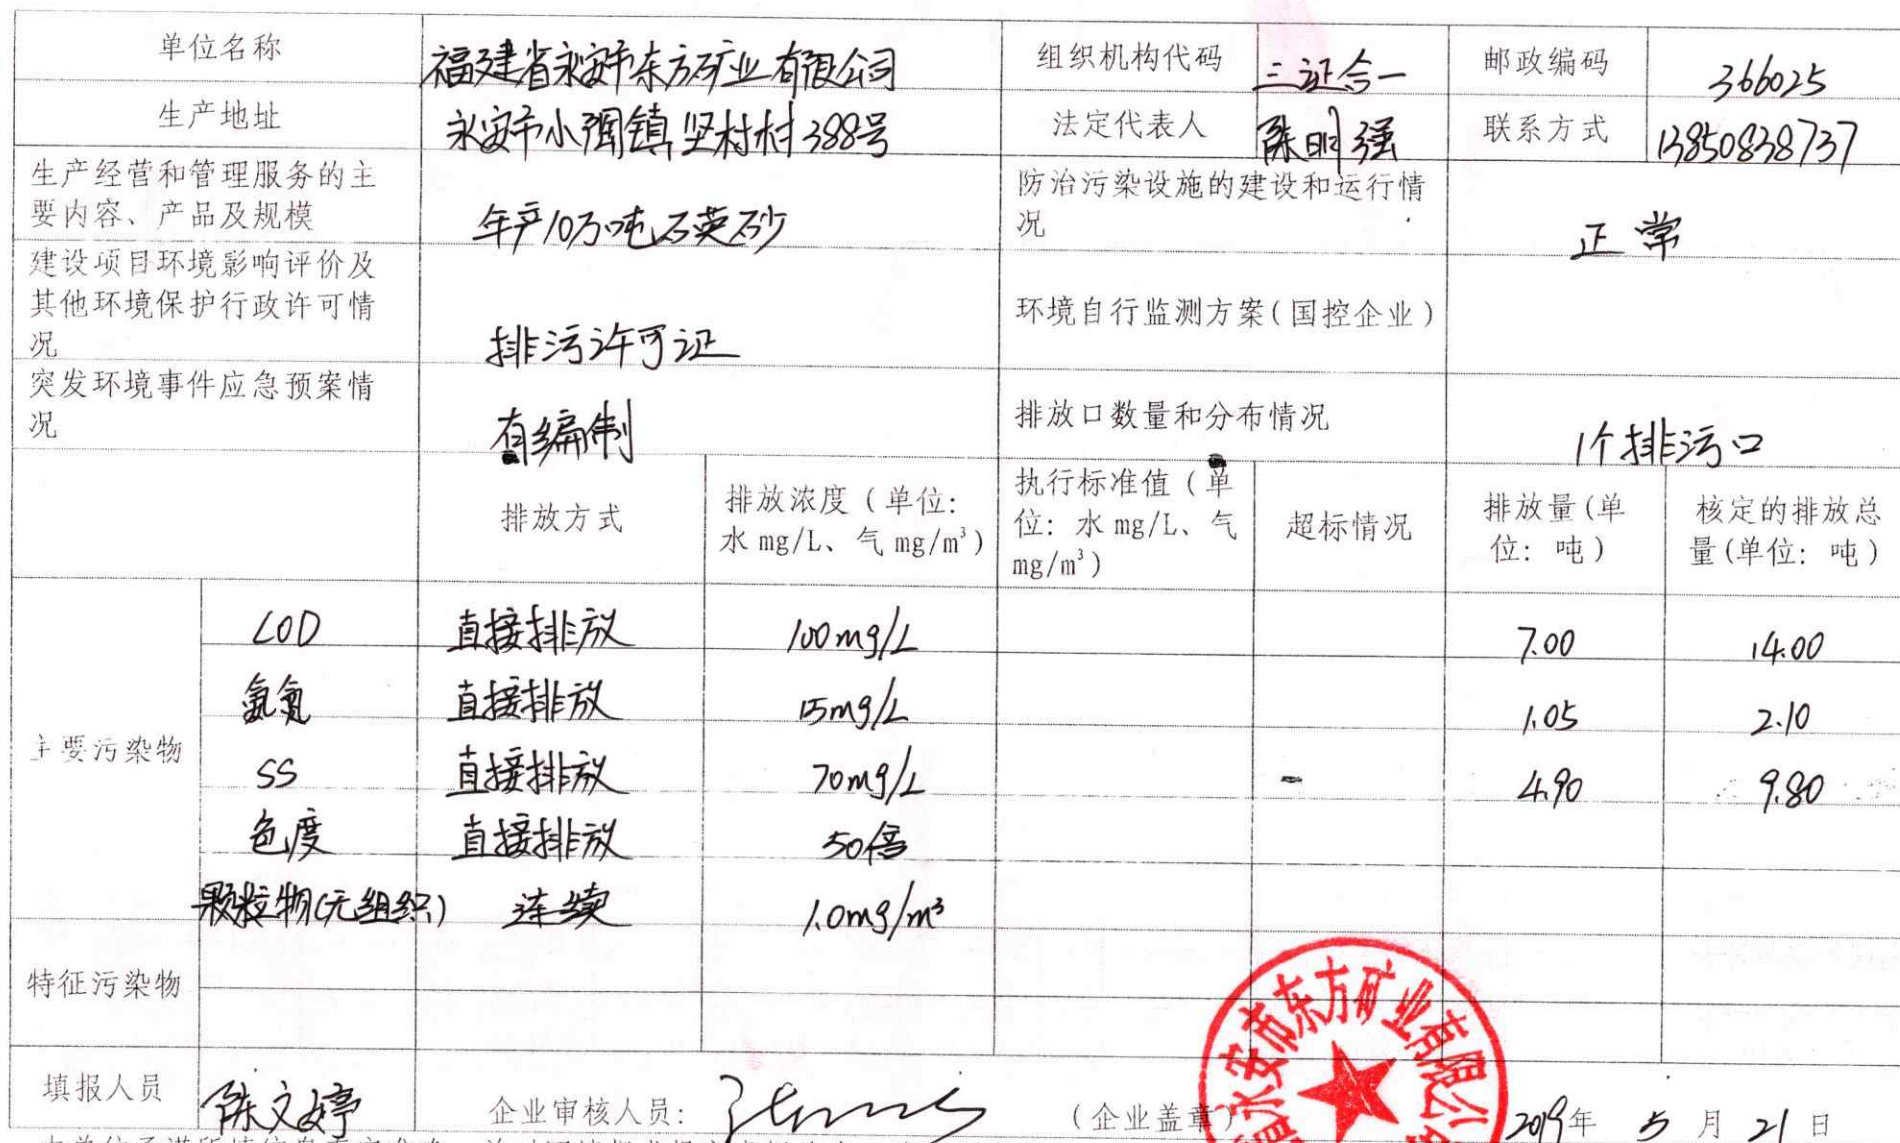 单位名称 福建省永安市东方矿业有限公司 组织机构代码 三证合一 邮政编码 366025
生产地址 永安市小陶镇坚村村388号 法定代表人 陈明强 联系方式 13850838737
生产经营和管理服务的主
要内容、产品及规模
年产10万吨石英砂
防治污染设施的建设和运行情
况
正常
建设项目环境影响评价及
其他环境保护行政许可情
况
排污许可证
环境自行监测方案(国控企业)
突发环境事件应急预案情
况
有编制
排放口数量和分布情况
1个排污口
排放方式
排放浓度(单位:
水mg/L、气mg/m³)
执行标准值(单
位: 水mg/L、气
mg/m³)
超标情况
排放量(单
位: 吨)
核定的排放总
量(单位: 吨)
主要污染物
COD 直接排放 100mg/L 7.00 14.00
氨氮 直接排放 15mg/L 1.05 2.10
SS 直接排放 70mg/L - 4.90 9.80
色度 直接排放 50倍
颗粒物(无组织) 连续 1.0mg/m³
特征污染物
填报人员 陈文婷 企业审核人员: (企业盖章) 2019年 5月21日
永安市东方矿业有限公